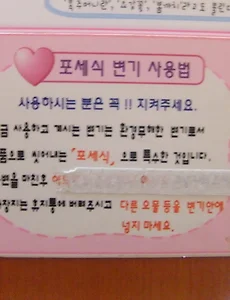 포세식 변기 사용법
사용하시는 분은 꼭 !! 지켜주세요.
사용하고 계시는 변기는 환경무해한 변기로서
씻어내는 「포세식」 으로 특수한 것입니다.
마친후
휴지통에 버려주시고 다른 오물 등을 변기안에
넣지 마세요.